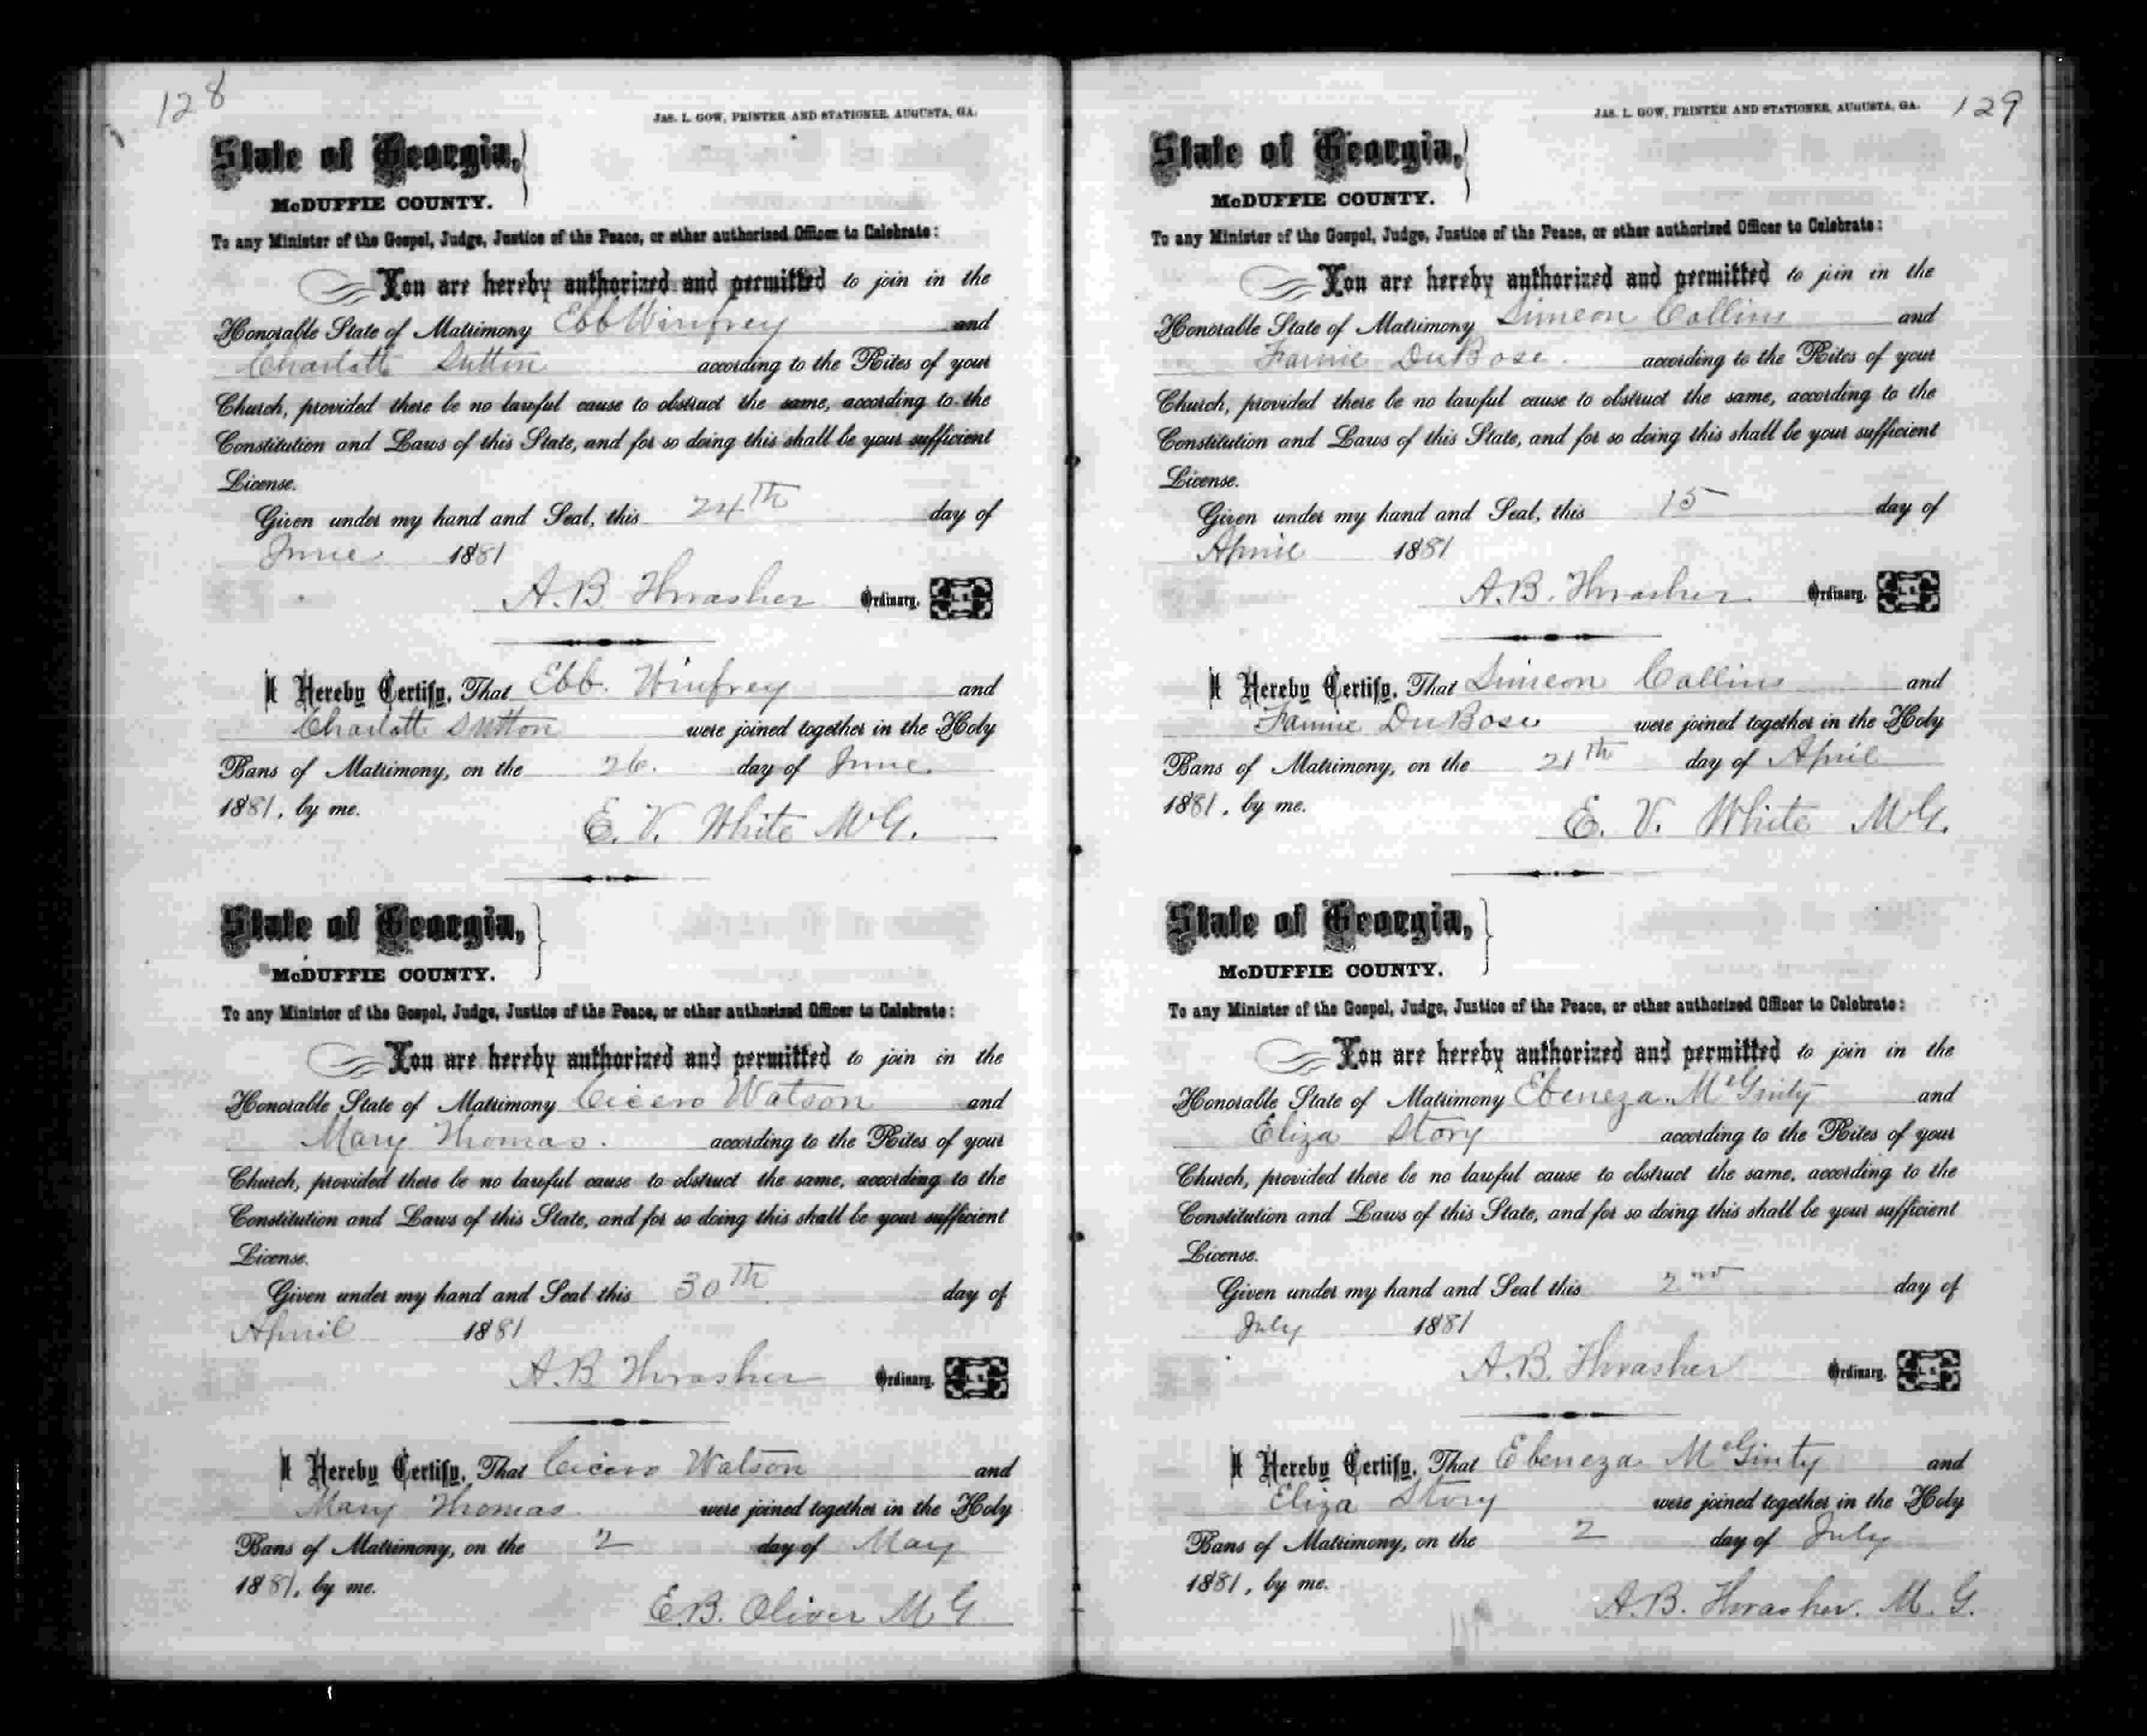 128
JAS. L. GOW, PRINTER AND STATIONER, AUGUSTA, GA.
State of Georgia,
McDUFFIE COUNTY.
To any Minister of the Gospel, Judge, Justice of the Peace, or other authorized Officer to Celebrate:
You are hereby authorized and permitted to join in the
Honorable State of Matrimony Ebb Winfrey and
Charlott Sutton according to the Rites of your
Church, provided there be no lawful cause to obstruct the same, according to the
Constitution and Laws of this State, and for so doing this shall be your sufficient
License.
Given under my hand and Seal, this 24th day of
June 1881
A. B. Thrasher Ordinary. L. S.
I Hereby Certify, That Ebb. Winfrey and
Charlott Sutton were joined together in the Holy
Bans of Matrimony, on the 26. day of June
1881, by me.
E. V. White M G.
State of Georgia,
McDUFFIE COUNTY.
To any Minister of the Gospel, Judge, Justice of the Peace, or other authorized Officer to Celebrate:
You are hereby authorized and permitted to join in the
Honorable State of Matrimony Cicero Watson and
Mary Thomas. according to the Rites of your
Church, provided there be no lawful cause to obstruct the same, according to the
Constitution and Laws of this State, and for so doing this shall be your sufficient
License.
Given under my hand and Seal this 30th day of
April 1881
A. B Thrasher Ordinary. L. S.
I Hereby Certify, That Cicero Watson and
Mary Thomas were joined together in the Holy
Bans of Matrimony, on the 2 day of May
1881, by me.
E. B. Oliver M G
129
JAS. L. GOW, PRINTER AND STATIONER, AUGUSTA, GA.
State of Georgia,
McDUFFIE COUNTY.
To any Minister of the Gospel, Judge, Justice of the Peace, or other authorized Officer to Celebrate:
You are hereby authorized and permitted to join in the
Honorable State of Matrimony Simeon Collins and
Fannie DuBose. according to the Rites of your
Church, provided there be no lawful cause to obstruct the same, according to the
Constitution and Laws of this State, and for so doing this shall be your sufficient
License.
Given under my hand and Seal, this 15 day of
April 1881
A. B. Thrasher Ordinary. L. S.
I Hereby Certify, That Simeon Collins and
Fannie DuBose were joined together in the Holy
Bans of Matrimony, on the 21th day of April
1881, by me.
E. V. White M G.
State of Georgia,
McDUFFIE COUNTY.
To any Minister of the Gospel, Judge, Justice of the Peace, or other authorized Officer to Celebrate:
You are hereby authorized and permitted to join in the
Honorable State of Matrimony Ebeneza McGinty and
Eliza Story according to the Rites of your
Church, provided there be no lawful cause to obstruct the same, according to the
Constitution and Laws of this State, and for so doing this shall be your sufficient
License.
Given under my hand and Seal this 2nd day of
July 1881
A. B. Thrasher Ordinary. L. S.
I Hereby Certify, That Ebeneza McGinty and
Eliza Story were joined together in the Holy
Bans of Matrimony, on the 2 day of July
1881, by me.
A. B. Thrasher. M. G.